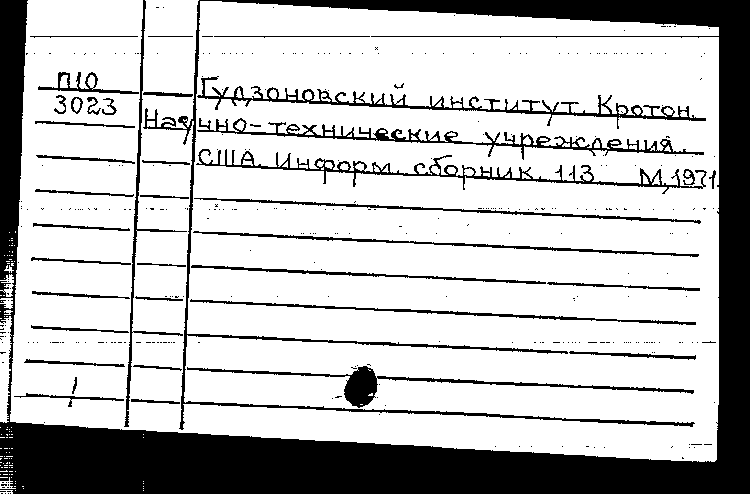 П10
3023
Гудзоновский институт. Кротон.
Научно-технические учреждения.
США. Информ. сборник. 113 М, 1971.
1